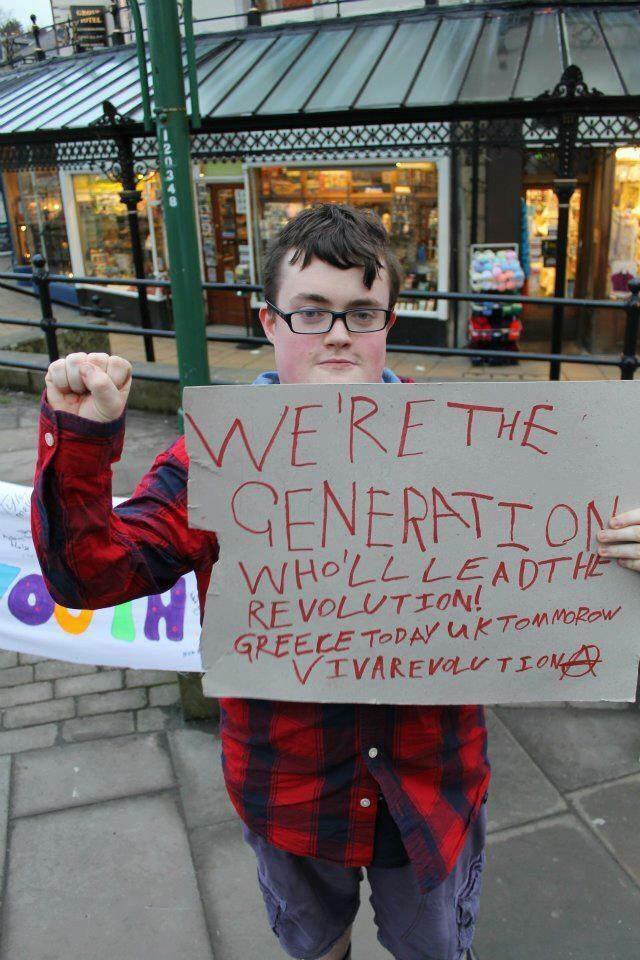 GROVE
HOTEL
120348
WE'RE THE
GENERATION
WHO'LL LEAD THE
REVOLUTION!
GREECE TODAY UK TOMMOROW
VIVA REVOLUTION Ⓐ
YOUTH